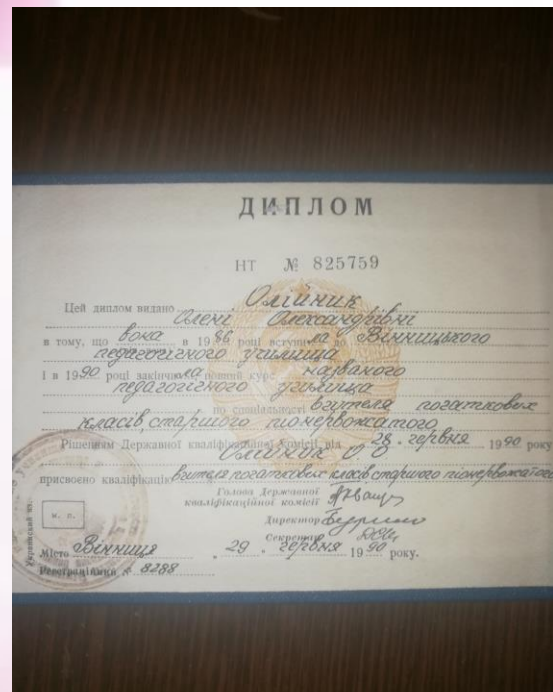 ДИПЛОМ
НТ № 825759
Цей диплом видано Олійник
Олені Олександрівні
в тому, що вона в 1986 році вступила до Вінницького
педагогічного училища
і в 1990 році закінчила повний курс названого
педагогічного училища
по спеціальності вчителя початкових
класів старшого піонервожатого
Рішенням Державної кваліфікаційної комісії від 28 . червня 1990 року
Олійник О.О
присвоєно кваліфікацію вчителя початкових класів старшого піонервожатого
Голова Державної
кваліфікаційної комісії
м. п.
Директор
Секретар
Місто Вінниця „ 29 „ червня 1990 року.
Реєстраційний № 8288